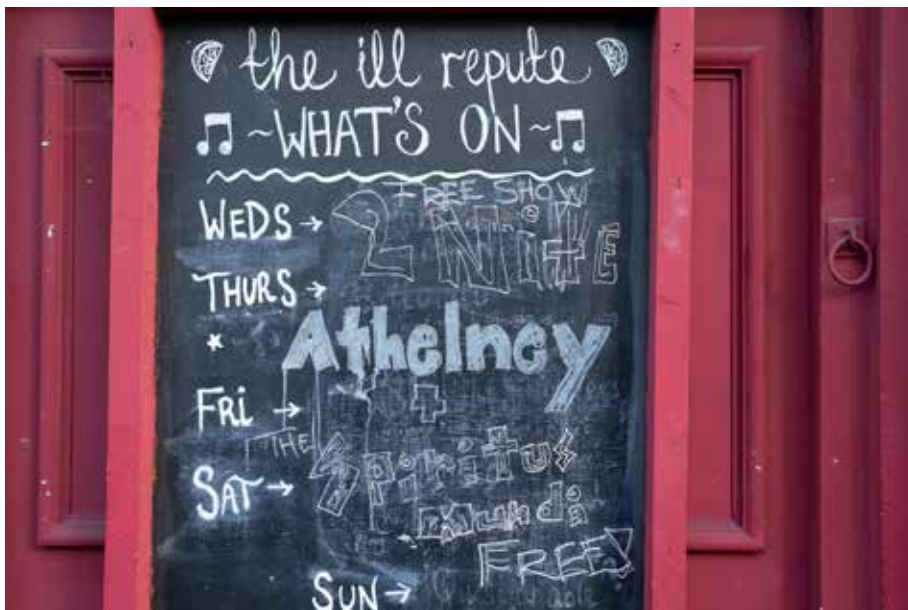 the ill repute
~WHAT'S ON~
FREE SHOW
WEDS → 2 NitE
THURS →
Athelney
+
FRI →
THE
SAT → Spiritus
Mundi
FREE!
SUN →